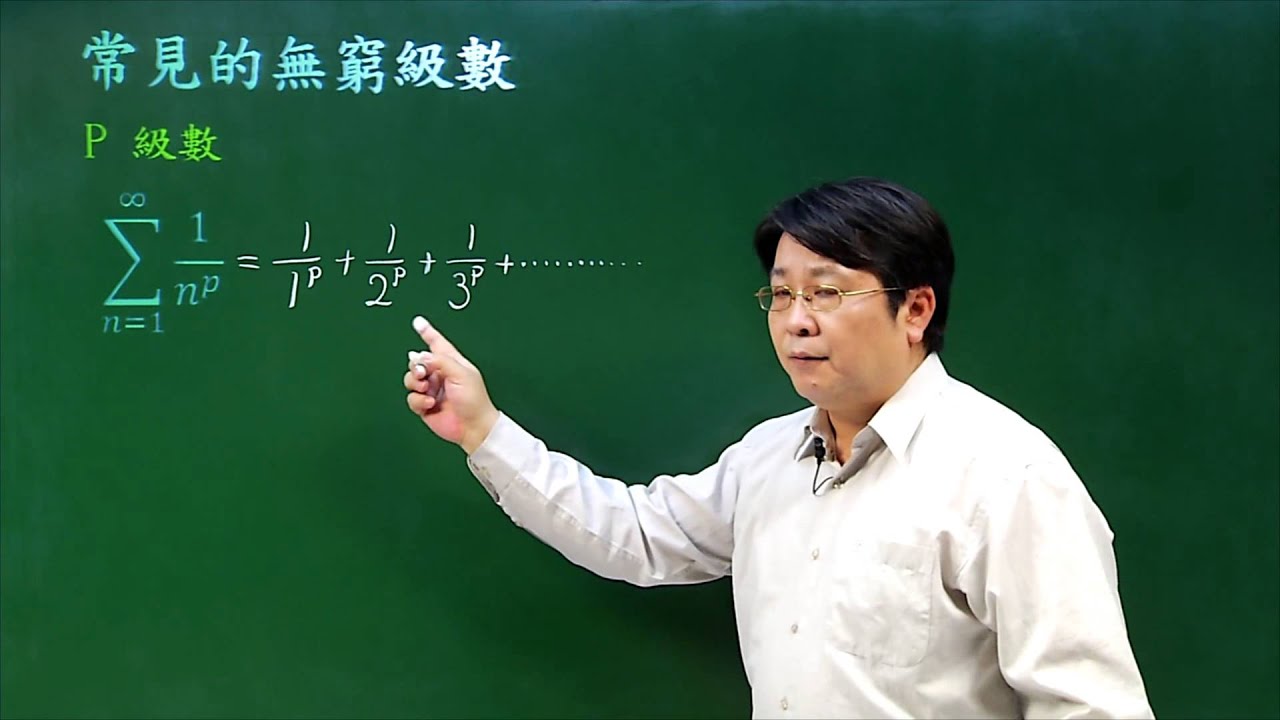 常見的無窮級數
P 級數
\sum_{n=1}^{\infty} \frac{1}{n^p} = \frac{1}{1^p} + \frac{1}{2^p} + \frac{1}{3^p} + ..........